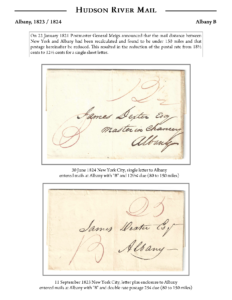 HUDSON RIVER MAIL
Albany, 1823 / 1824 Albany B
On 23 January 1823 Postmaster General Meigs announced that the mail distance between
New York and Albany had been recalculated and found to be under 150 miles and that
postage hereinafter be reduced. This resulted in the reduction of the postal rate from 18½
cents to 12½ cents for a single sheet letter.
12½
James Dexter Esq
Master in Chancery
Albany
B
30 June 1824 New York City, single letter to Albany
entered mails at Albany with "B" and 12½¢ due (80 to 150 miles)
25
James Dexter Esq
Albany
B
11 September 1823 New York City, letter plus enclosure to Albany
entered mails at Albany with "B" and double rate postage 25¢ due (80 to 150 miles)